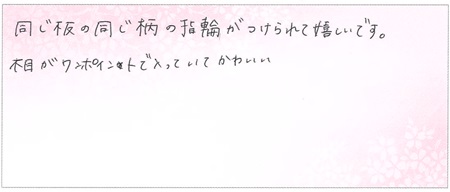 同じ板の同じ柄の指輪がつけられて嬉しいです。
木目がワンポイントで入っていてかわいい